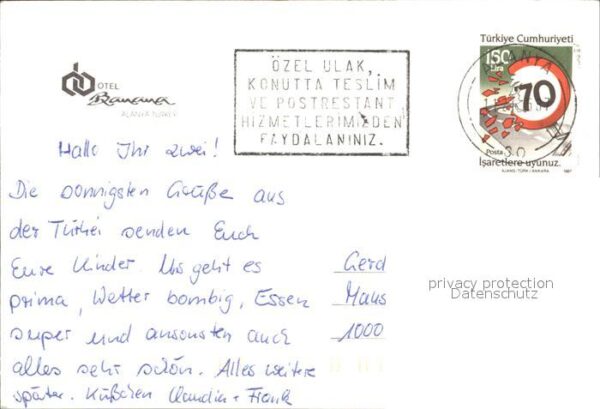 OTEL
Banana
ALANYA TURKEY
ÖZEL ULAK,
KONUTTA TESLİM
VE POSTRESTANT
HİZMETLERİMİZDEN
FAYDALANINIZ.
Türkiye Cumhuriyeti
150
Lira
70
ALANYA
30
Posta
İşaretlere uyunuz.
AJANS-TÜRK / ANKARA 1987
Hallo Ihr zwei!
Die sonnigsten Grüße aus
der Türkei senden Euch
Eure Kinder. Uns geht es
prima, Wetter bombig, Essen
super und ansonsten auch
alles sehr schön. Alles weitere
später. Küßchen Claudia + Frank
Gerd
Maus
1000
privacy protection
Datenschutz